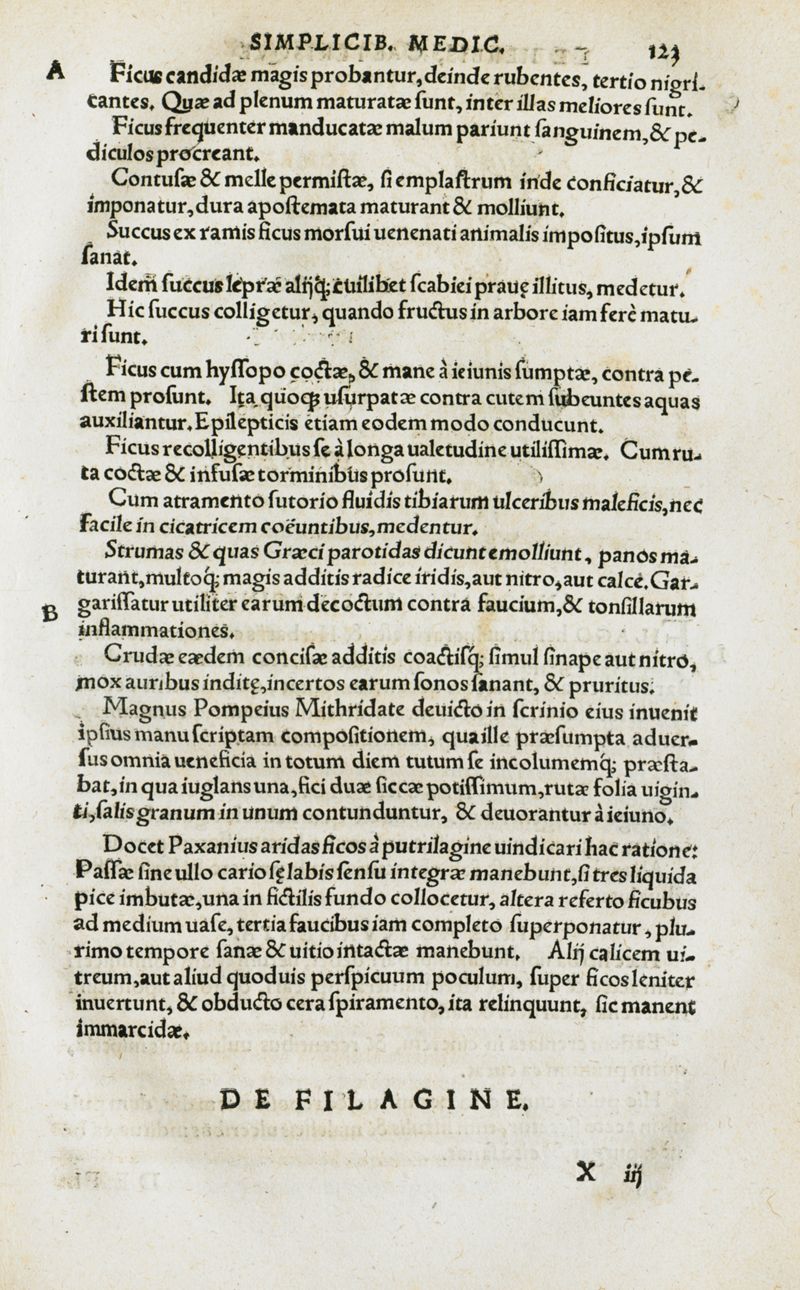 SIMPLICIB. MEDIC. 123
A Ficus candidæ magis probantur, deinde rubentes, tertio nigri-
cantes. Quæ ad plenum maturatæ ſunt, inter illas meliores ſunt.
Ficus frequenter manducatæ malum pariunt ſanguinem, & pe-
diculos procreant.
Contuſæ & melle permiſtæ, ſi emplaſtrum inde conficiatur, &
imponatur, dura apoſtemata maturant & molliunt.
Succus ex ramis ficus morſui uenenati animalis impoſitus, ipſum
ſanat.
Idem ſuccus lepræ alijq; cuilibet ſcabiei prauę illitus, medetur.
Hic ſuccus colligetur, quando fructus in arbore iam ferè matu-
ri ſunt.
Ficus cum hyſſopo coctæ, & mane à ieiunis ſumptæ, contra pe-
ſtem proſunt. Ita quoq; uſurpatæ contra cutem ſubeuntes aquas
auxiliantur. Epilepticis etiam eodem modo conducunt.
Ficus recolligentibus ſe à longa ualetudine utiliſſimæ. Cum ru-
ta coctæ & infuſæ torminibus proſunt.
Cum atramento ſutorio fluidis tibiarum ulceribus maleficis, nec
facile in cicatricem coëuntibus, medentur.
Strumas & quas Græci parotidas dicunt emolliunt, panos ma-
turant, multoq; magis additis radice iridis, aut nitro, aut calce. Gar-
B gariſſatur utiliter earum decoctum contra faucium, & tonſillarum
inflammationes.
Crudæ eædem conciſæ additis coactiſq; ſimul ſinape aut nitro,
mox auribus inditę, incertos earum ſonos ſanant, & pruritus.
Magnus Pompeius Mithridate deuicto in ſcrinio eius inuenit
ipſius manu ſcriptam compoſitionem, qua ille præſumpta aduer-
ſus omnia ueneficia in totum diem tutum ſe incolumemq; præſta-
bat, in qua iuglans una, fici duæ ſiccæ potiſſimum, rutæ folia uigin-
ti, ſalis granum in unum contunduntur, & deuorantur à ieiuno.
Docet Paxanius aridas ficos à putrilagine uindicari hac ratione:
Paſſæ ſine ullo carioſę labis ſenſu integræ manebunt, ſi tres liquida
pice imbutæ, una in fictilis fundo collocetur, altera referto ficubus
ad medium uaſe, tertia faucibus iam completo ſuperponatur, plu-
rimo tempore ſanæ & uitio intactæ manebunt. Alij calicem ui-
treum, aut aliud quoduis perſpicuum poculum, ſuper ficos leniter
inuertunt, & obducto cera ſpiramento, ita relinquunt, ſic manent
immarcidæ.
DE FILAGINE.
X iij